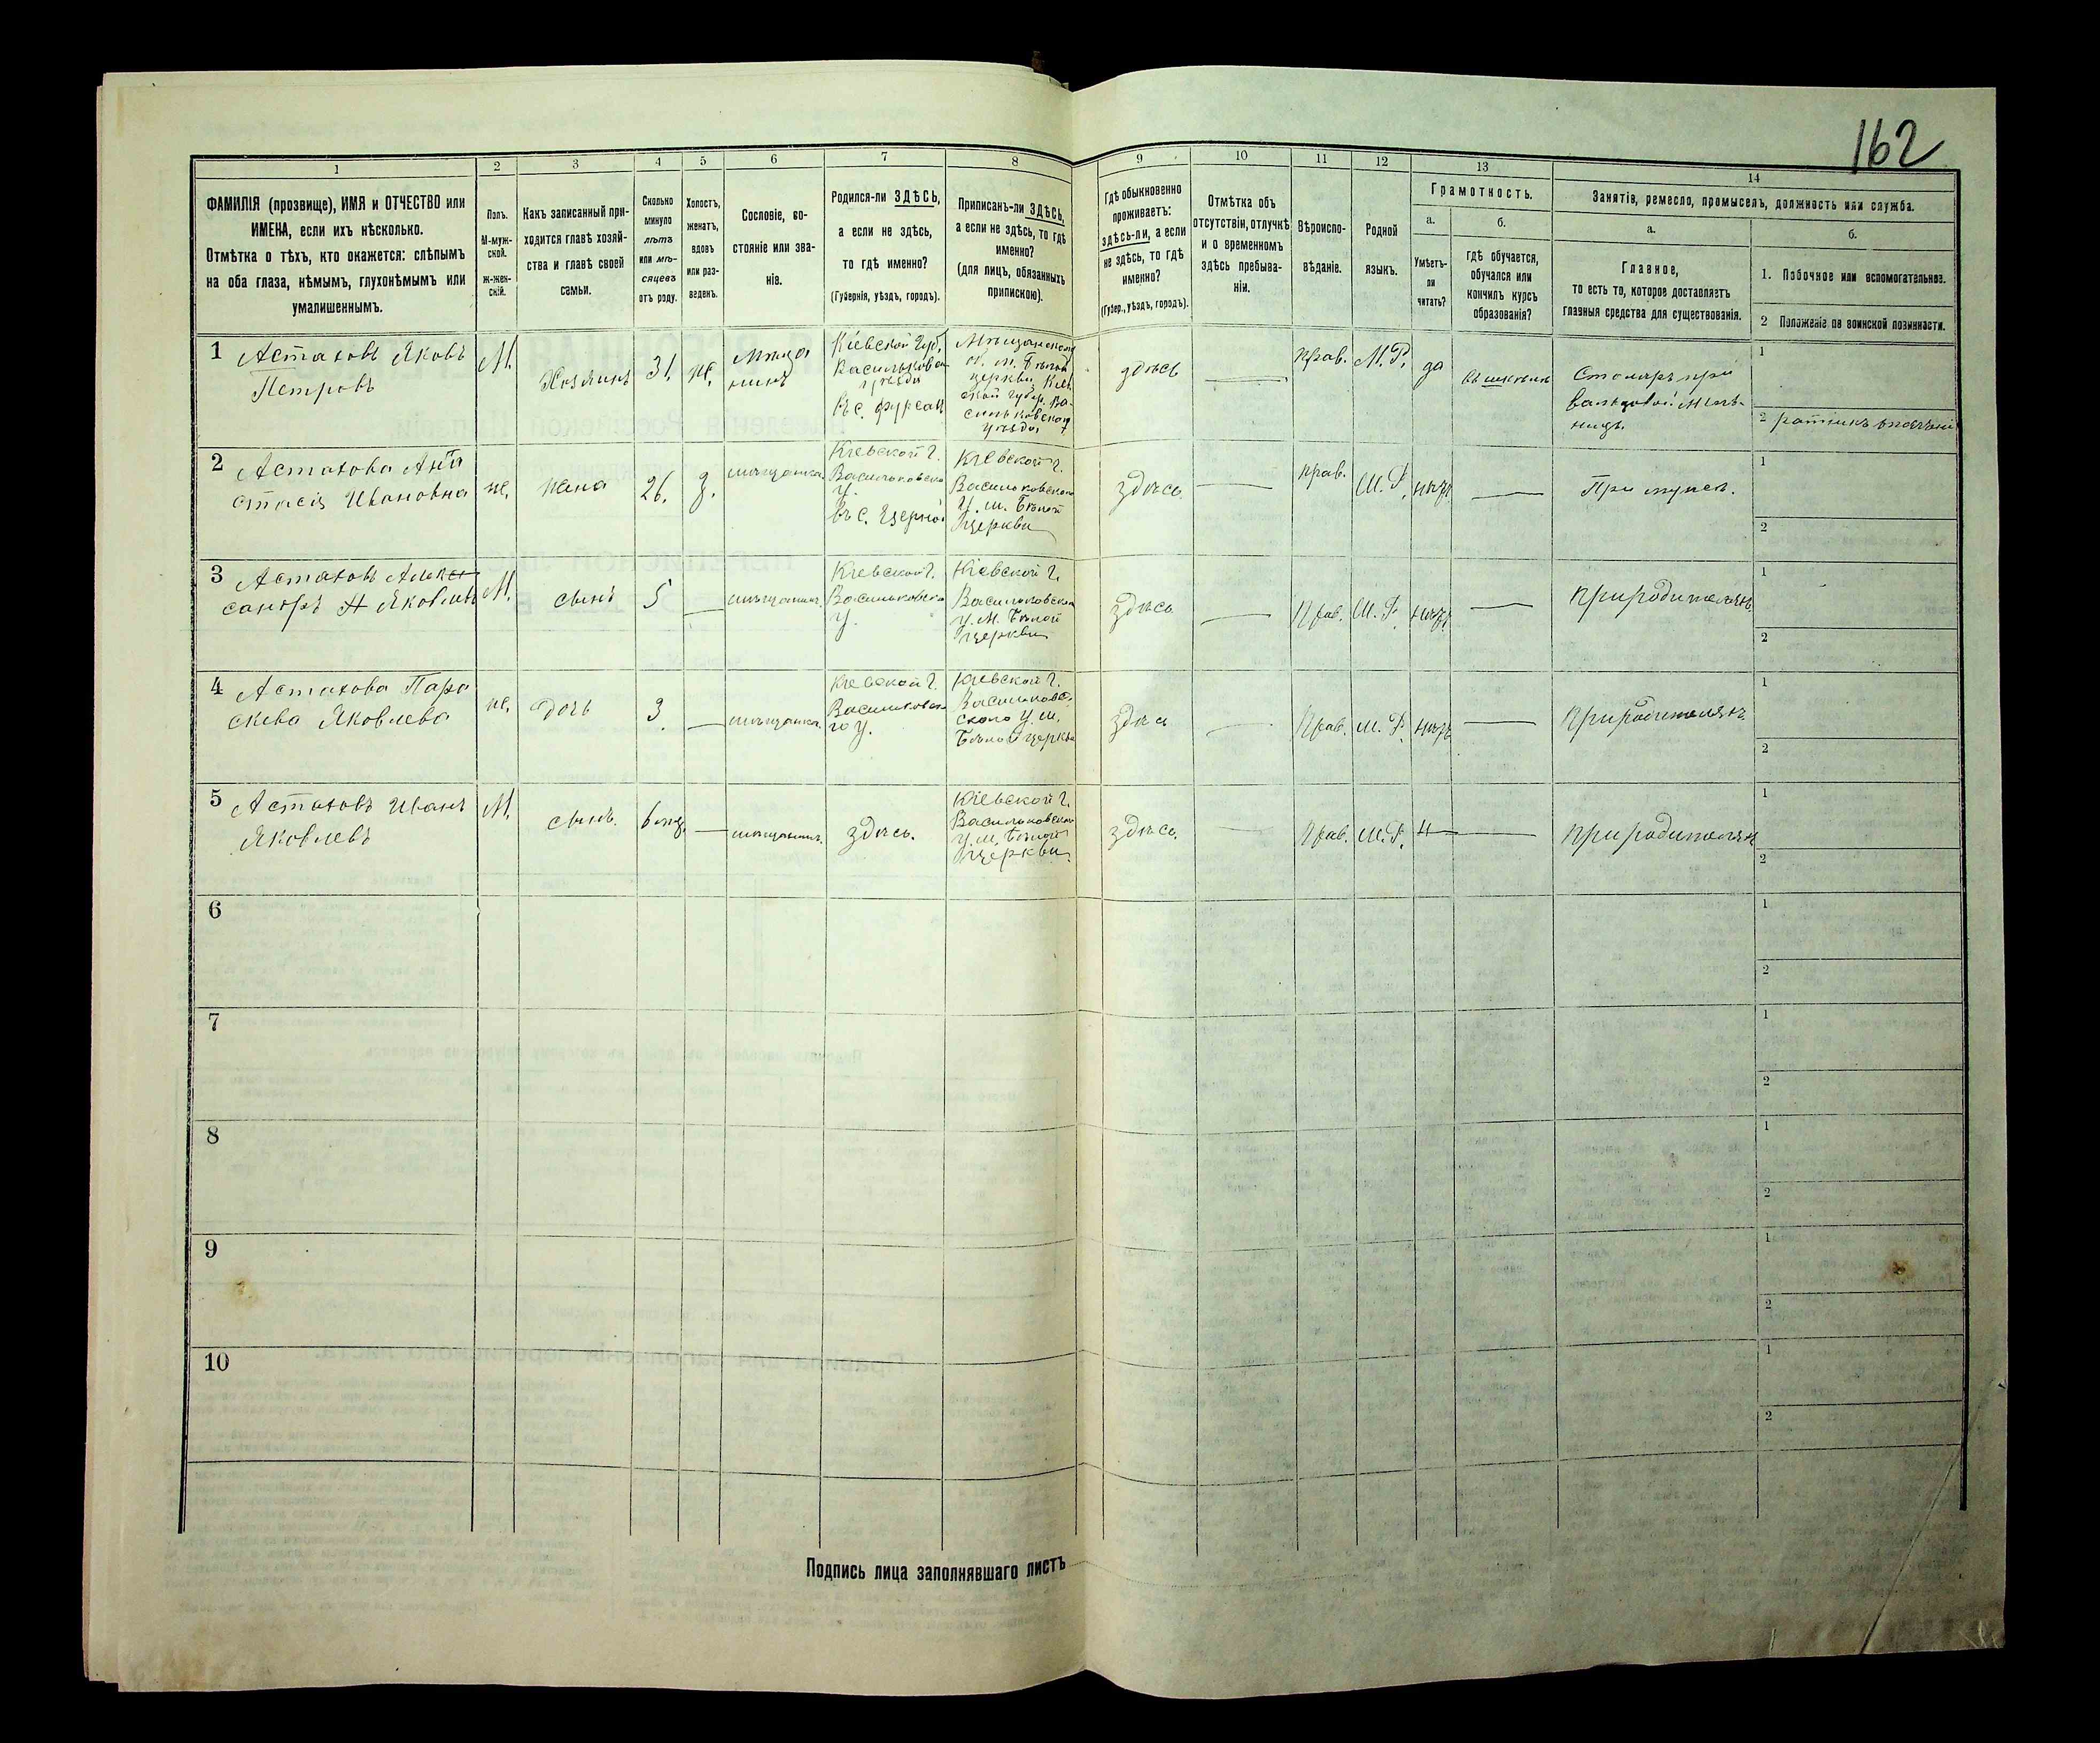 162
1 2 3 4 5 6 7 8 9 10 11 12 13 14
ФАМИЛІЯ (прозвище), ИМЯ и ОТЧЕСТВО или
ИМЕНА, если ихъ нѣсколько.
Отмѣтка о тѣхъ, кто окажется: слѣпымъ
на оба глаза, нѣмымъ, глухонѣмымъ или
умалишеннымъ.
Полъ.
М-муж-
ской.
ж-жен-
скій.
Какъ записанный при-
ходится главѣ хозяй-
ства и главѣ своей
семьи.
Сколько
минуло
лѣтъ
или мѣ-
сяцевъ
отъ роду.
Холостъ,
женатъ,
вдовъ
или раз-
веденъ.
Сословіе, со-
стояніе или зва-
ніе.
Родился-ли ЗДѢСЬ,
а если не здѣсь,
то гдѣ именно?
(Губернія, уѣздъ, городъ).
Приписанъ-ли ЗДѢСЬ,
а если не здѣсь, то гдѣ
именно?
(для лицъ, обязанныхъ
припискою).
Гдѣ обыкновенно
проживаетъ:
здѣсь-ли, а если
не здѣсь, то гдѣ
именно?
(Губер., уѣздъ, городъ).
Отмѣтка объ
отсутствіи, отлучкѣ
и о временномъ
здѣсь пребыва-
ніи.
Вѣроиспо-
вѣданіе.
Родной
языкъ.
Грамотность.
а.
Умѣетъ-
ли
читать?
б.
гдѣ обучается,
обучался или
кончилъ курсъ
образованія?
Занятіе, ремесло, промыселъ, должность или служба.
а.
Главное,
то есть то, которое доставляетъ
главныя средства для существованія.
б.
1. Побочное или вспомогательное.
2 Положеніе по воинской повинности.
1 Астаховъ Яковъ
Петровъ
М.
Хозяинъ
31.
же.
Мѣща
нинъ
Кіевской Губ,
Васильковска
уѣзда
въ с. Фурсах
Церкви, Кіев
ской губер. Ва-
сильковскаго
уѣзда,
здѣсь
прав.
М.Р.
да
Столяръ при
вальцовой мель-
ницѣ.
1
2
2 Астахова Ана
стасія Ивановна
же.
жена
26.
з.
мѣщанка
Кіевской г.
Васильковска
у.
Кіевской г.
Васильковскаго
у. м. Бѣлой
Церкви
здѣсь
прав.
М.Р.
нѣтъ
При мужѣ.
1
2
3 Астаховъ Алек
сандръ Яковлевъ
М.
сынъ
5
мѣщанин.
Кіевской г.
Васильковска
у.
Кіевской г.
Васильковскаго
у. м. Бѣлой
Церкви
здѣсь
Прав.
М.Р.
нѣтъ
При родителяхъ
1
2
4 Астахова Пара
скева Яковлева
же.
дочь
3.
мѣщанка.
Кіевской г.
Васильковска
го у.
Кіевской г.
Васильков-
скаго у. м.
Бѣлой Церкви
здѣсь
Прав.
М.Р.
нѣтъ
При родителяхъ
1
2
5 Астаховъ Иванъ
Яковлевъ
М.
сынъ.
6 мѣ.
мѣщанин.
здѣсь.
Кіевской г.
Васильковскаго
у. м. Бѣлой
Церкви.
здѣсь
Прав.
М.Р.
Н
При родителях
1
2
6
1
2
7
1
2
8
1
2
9
1
2
10
1
2
Подпись лица заполнявшаго листъ